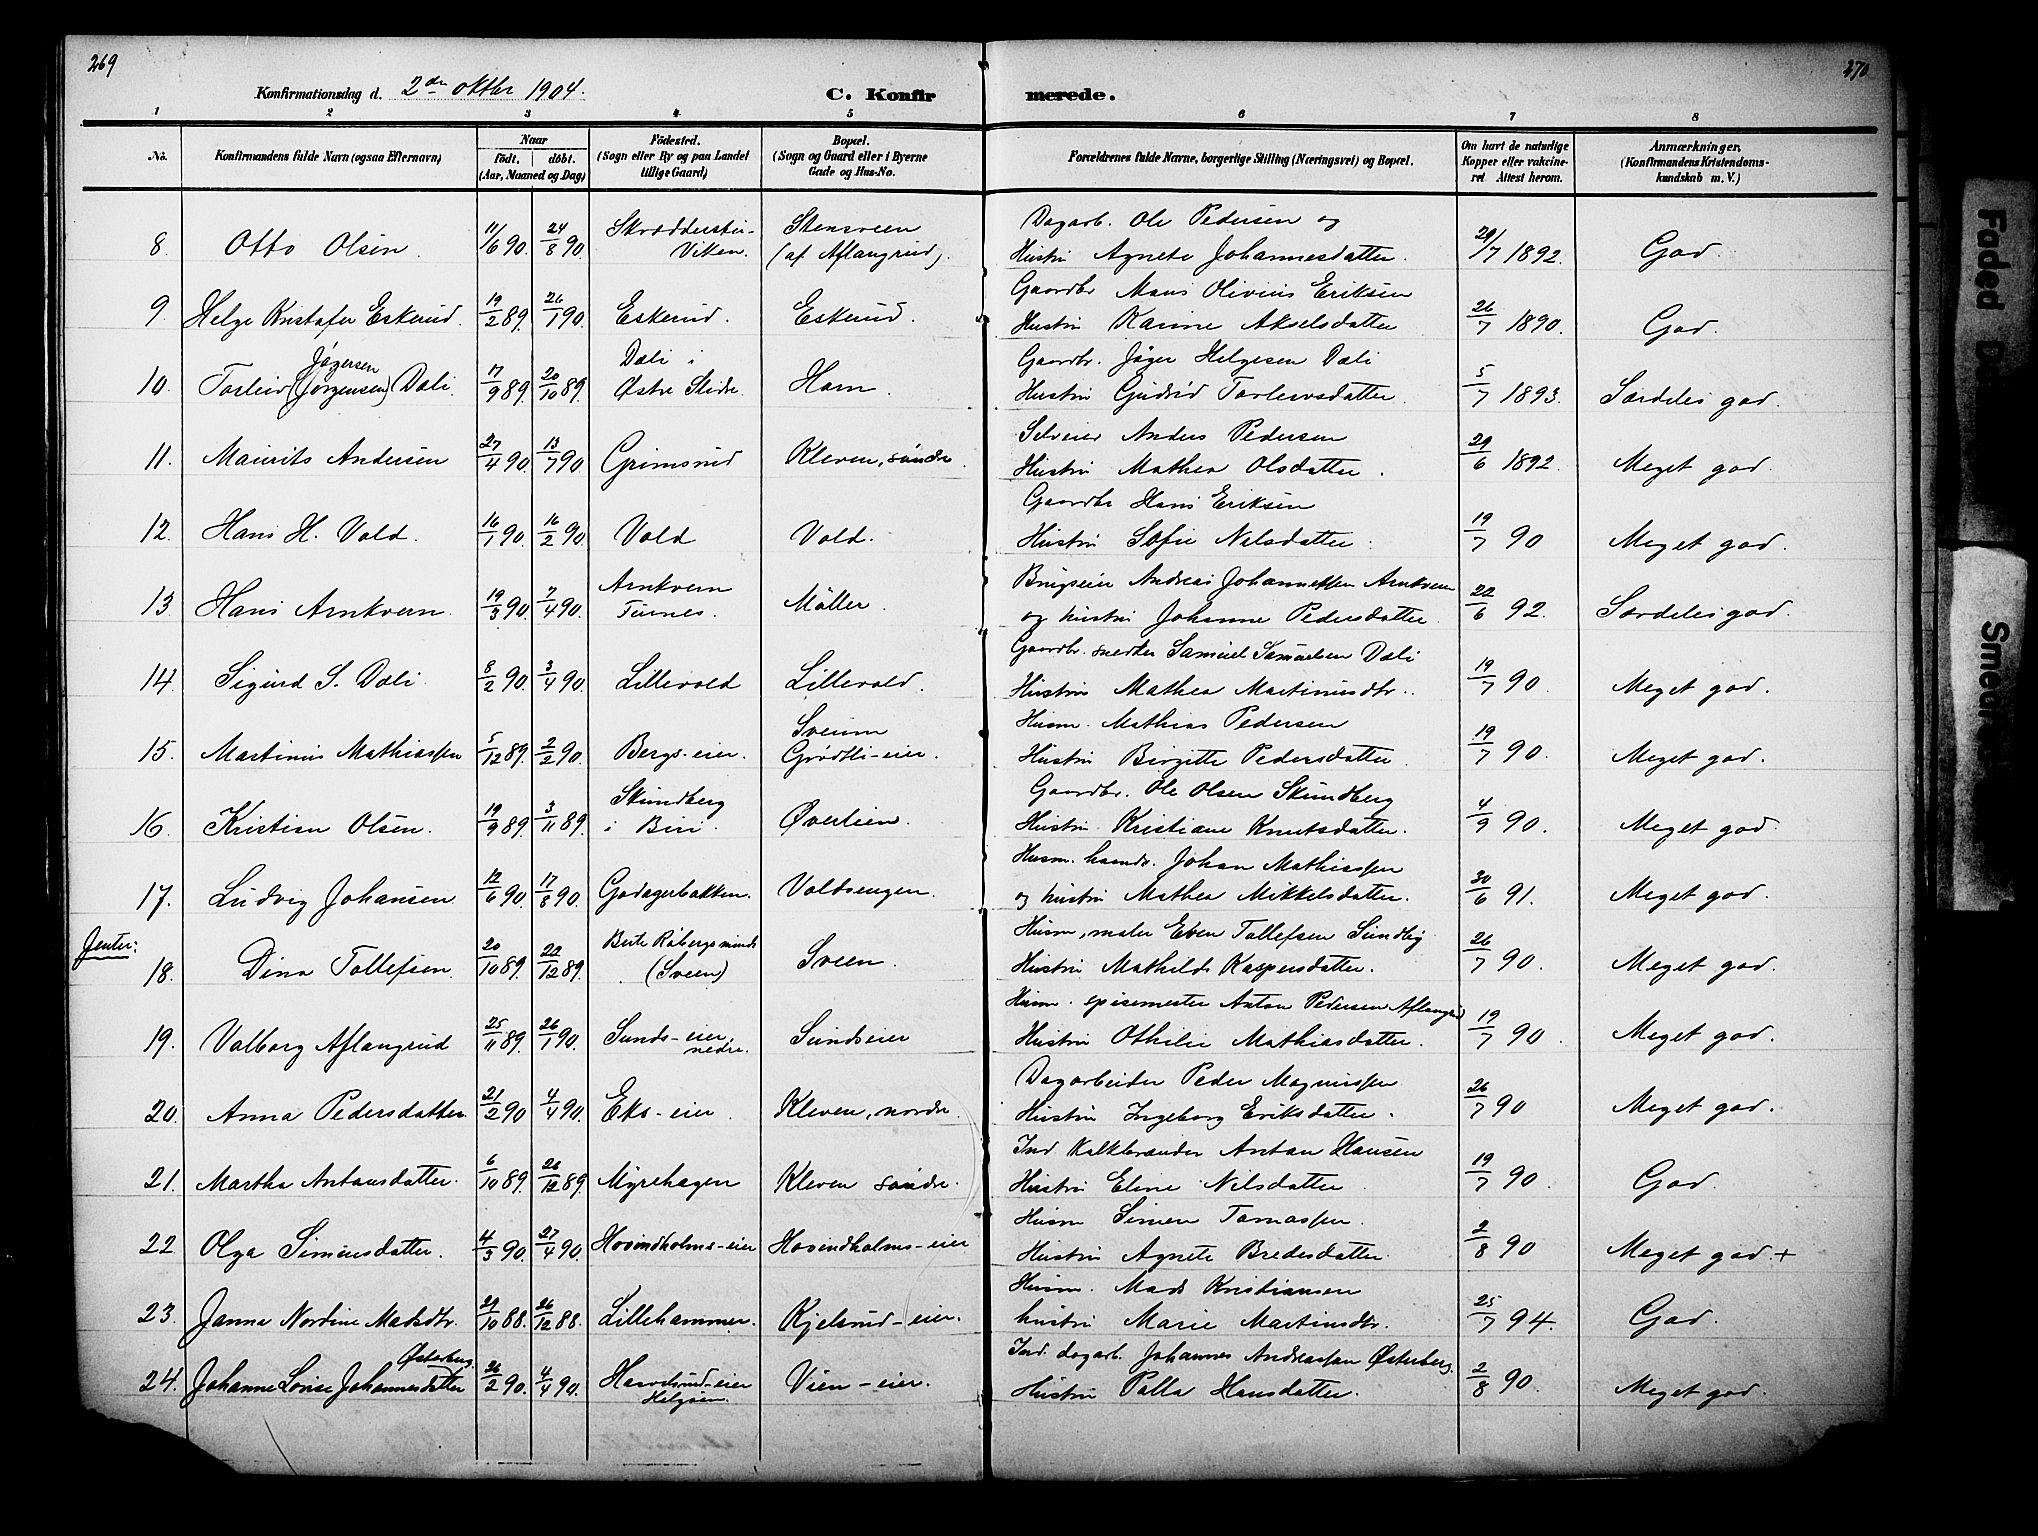 269
270
Konfirmationsdag d. 2den oktbr 1904.
C. Konfirmerede.
1 2 3 4 5 6 7 8
No. Konfirmandens fulde Navn (ogsaa Efternavn)
Naar født, døbt. (Aar, Maaned og Dag)
Födested. (Sogn eller By og paa Landet tillige Gaard)
Bopæl. (Sogn og Gaard eller i Byerne Gade og Hus-No.
Forældrenes fulde Navne, borgerlige Stilling (Næringsvei) og Bopæl.
Om havt de naturlige Kopper eller vakcineret Attest herom.
Anmærkninger, (Konfirmandens Kristendomskundskab m. V.)
8. Otto Olsen. 11/6 90. 24/8 90 Viken. Stensveen (af Aflangrud). Dagarb. Ole Pedersen og
Hustru Agnete Johannesdatter. 20/7 1892. God.
9. Helge Kristofer Eskerud. 19/2 89. 26/1 90 Eskerud. Eskerud. Gaardbr Mans Olivius Eriksen
Hustru Karine Akselsdatter 26/7 1890. God.
10. Torleiv (Jørgensen) Jøgersen Dæli. 17/9 89. 20/10 89. Dæli i Østre Slidre. Ham. Gaardbr. Jøger Helgesen Dæli
Hustru Gudrid Torleivsdatter. 5/7 1893. Særdeles god.
11. Maurits Andersen 27/4 90. 13/7 90 Grimsrud Kleven, søndre. Selveier Anders Pedersen
Hustru Mathea Olsdatter. 29/6 1892. Meget god.
12. Hans H. Vold. 16/1 90. 16/2 90. Vold Vold. Gaardbr Hans Eriksen
Hustru Sofie Nilsdatter. 19/7 90 Meget god.
13. Hans Arnkvern. 19/3 90. 7/4 90. Arnkvern Turnes. Möller. Brugseier Andreas Johannessen Arnkvern
og hustru Johanne Pedersdatter. 22/6 92. Særdeles god.
14. Sigurd S. Dæli. 8/2 90. 3/4 90. Lillevold Lillevold. Gaardbr. snedker Samuel Samuelsen Dæli
Hustru Mathea Martinusdtr. 19/7 90. Meget god.
15. Martinus Mathiassen 5/12 89. 2/2 90. Bergs-eier. Sveum Grødtli-eier. Husm. Mathias Pedersen
Hustru Birgitte Pedersdatter. 19/7 90. Meget god.
16. Kristian Olsen. 19/9 89. 3/11 89. Skundberg i Biri. Øverlien. Gaardbr. Ole Olsen Skundberg
Hustru Kristiane Knutsdatter. 4/9 90. Meget god.
17. Ludvig Johansen 12/6 90. 17/8 90. Godagerbakken. Voldsengen. Husm. handv. Johan Mathiassen
og hustru Mathea Mikkelsdatter. 30/6 91. Meget god.
Jenter:
18. Dina Tollefsen. 20/10 89. 22/12 89. (Sveen) Sveen. Husm, maler Even Tollefsen Sundby
Hustru Mathilde Kaspersdatter. 26/7 90. Meget god.
19. Valborg Aflangrud 25/11 89. 26/1 90. Sunds-eier, nedre. Sundseier Husm. spisemester Anton Pedersen Aflangrud
Hustru Othilie Mathiasdatter. 19/7 90. Meget god.
20. Anna Pedersdatter 21/2 90 4/4 90. Eks-eier. Kleven, nordre. Dagarbeider Peder Magnussen
Hustru Ingeborg Eriksdatter. 26/7 90 Meget god.
21. Martha Antonsdatter. 6/10 89. 26/12 89. Myrehagen Kleven søndre. Ind Kalkbrænder Anton Hansen
Hustru Eline Nilsdatter 19/7 90. God.
22 Olga Simensdatter. 4/3 90. 27/4 90. Hovindholms-eier Hovindholms-eier Husm Simen Tomassen.
Hustru Agnete Bredesdatter. 2/8 90 Meget god. +
23. Janna Nordine Madsdtr. 29/10 88. 26/12 88. Lillehammer. Kjelsrud-eier. Husm. Mads Kristiansen
hustru Marie Martinsdtr. 25/7 94. God.
24. Johanne Lovise Johannesdatter Østerberg 26/2 90. 4/4 90. Helgøen. Vien-eier. Ind. dagarb. Johannes Andreassen Østerberg.
Hustru Palla Hansdatter. 2/8 90. Meget god.
Faded